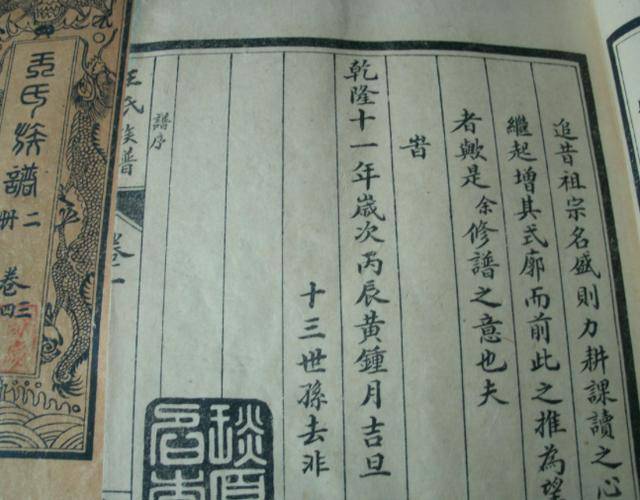 追昔祖宗名盛則力耕課讀之心
繼起增其式廓而前此之推為望
者歟是余修譜之意也夫
旹
乾隆十一年歲次丙辰黃鍾月吉旦
十三世孫去非
譜序
王氏族譜
卷一
王氏族譜
二冊
卷三四